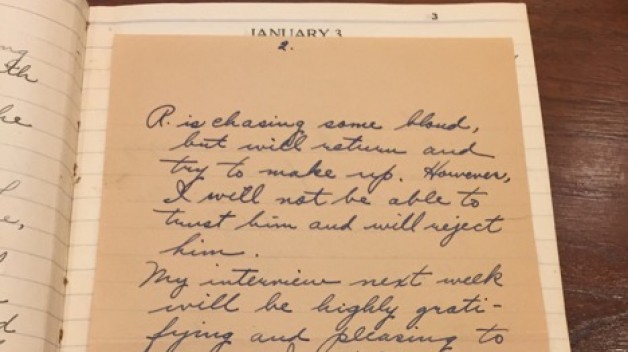 3
JANUARY 3
2.
ng
th
he
R. is chasing some blond,
but will return and
try to make up. However,
I will not be able to
trust him and will reject
him.
My interview next week
will be highly grati-
fying and pleasing to